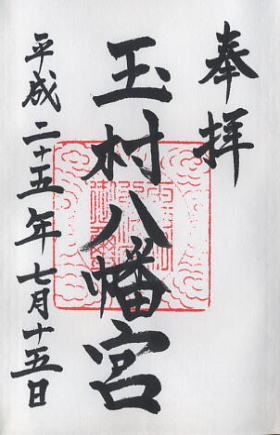 奉拝
玉村八幡宮
平成二十五年七月十五日